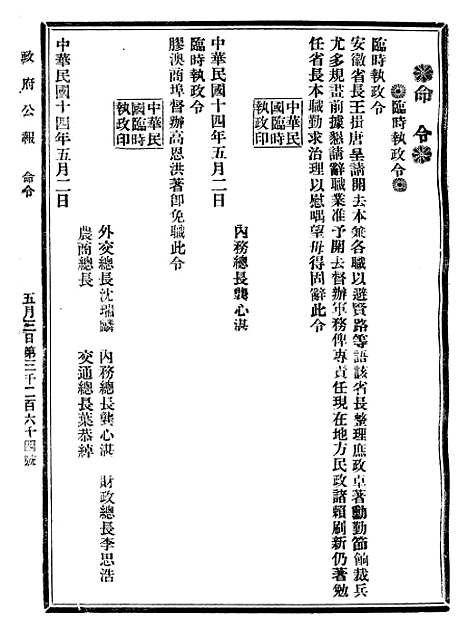 命令
臨時執政令
臨時執政令
安徽省長王揖唐呈請開去本兼各職以避賢路等語該省長整理庶政卓著勳勤節餉裁兵
尤多規畫前據懇請辭職業准予開去督辦軍務俾專責任現在地方民政諸賴刷新仍著勉
任省長本職勤求治理以慰喁望毋得固辭此令
中華民
國臨時
執政印
中華民國十四年五月二日
內務總長龔心湛
臨時執政令
膠澳商埠督辦高恩洪著卽免職此令
中華民
國臨時
執政印
中華民國十四年五月二日
外交總長沈瑞麟 內務總長龔心湛 財政總長李思浩
農商總長 交通總長葉恭綽
政府公報 命令 五月三日第三千二百六十四號